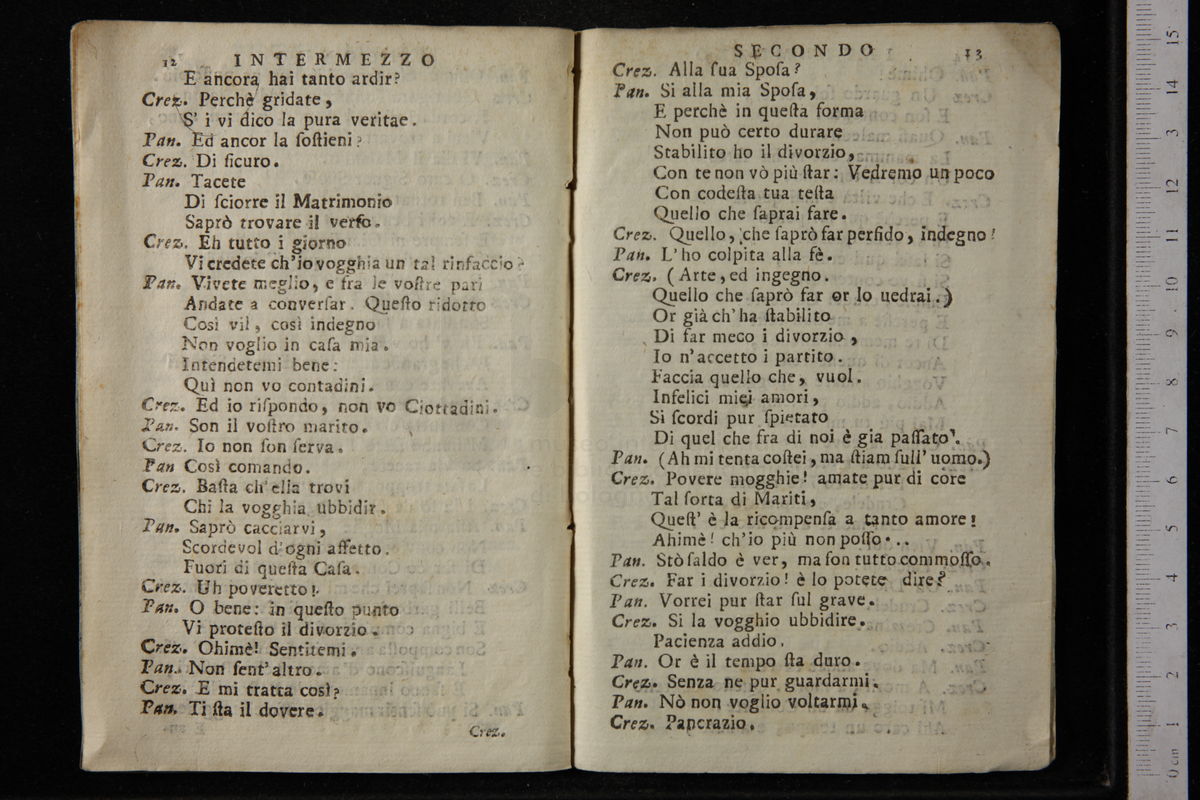 12 INTERMEZZO
E ancora hai tanto ardir?
Crez. Perchè gridate,
S' i vi dico la pura veritae.
Pan. Ed ancor la ſoſtieni?
Crez. Di ſicuro.
Pan. Tacete
Di ſciorre il Matrimonio
Saprò trovare il verſo.
Crez. Eh tutto i giorno
Vi credete ch'io vogghia un tal rinfaccio?
Pan. Vivete meglio, e fra le voſtre pari
Andate a converſar. Queſto ridotto
Così vil, così indegno
Non voglio in caſa mia.
Intendetemi bene:
Quì non vo contadini.
Crez. Ed io riſpondo, non vo Ciottadini.
Pan. Son il voſtro marito.
Crez. Io non ſon ſerva.
Pan Così comando.
Crez. Baſta ch'ella trovi
Chi la vogghia ubbidir.
Pan. Saprò cacciarvi,
Scordevol d'ogni affetto.
Fuori di queſta Caſa.
Crez. Uh poveretto!
Pan. O bene: in queſto punto
Vi proteſto il divorzio.
Crez. Ohimè! Sentitemi.
Pan. Non ſent' altro.
Crez. E mi tratta così?
Pan. Ti ſta il dovere.
Crez.
SECONDO 13
Crez. Alla ſua Spoſa?
Pan. Si alla mia Spoſa,
E perchè in queſta forma
Non può certo durare
Stabilito ho il divorzio,
Con te non vò più ſtar: Vedremo un poco
Con codeſta tua teſta
Quello che ſaprai fare.
Crez. Quello, che ſaprò far perfido, indegno!
Pan. L'ho colpita alla fè.
Crez. (Arte, ed ingegno.
Quello che ſaprò far or lo uedrai.)
Or già ch'ha ſtabilito
Di far meco i divorzio,
Io n'accetto i partito.
Faccia quello che, vuol.
Infelici miei amori,
Si ſcordi pur ſpietato
Di quel che fra di noi è gia paſſato.
Pan. (Ah mi tenta coſtei, ma ſtiam ſull' uomo.)
Crez. Povere mogghie! amate pur di core
Tal ſorta di Mariti,
Queſt' è la ricompenſa a tanto amore!
Ahimè! ch'io più non poſſo...
Pan. Stò ſaldo è ver, ma ſon tutto commoſſo.
Crez. Far i divorzio! è lo potete dire?
Pan. Vorrei pur ſtar ſul grave.
Crez. Si la vogghio ubbidire.
Pacienza addio.
Pan. Or è il tempo ſta duro.
Crez. Senza ne pur guardarmi.
Pan. Nò non voglio voltarmi.
Crez. Pancrazio.
0 cm 1 2 3 4 5 6 7 8 9 10 11 12 13 14 15